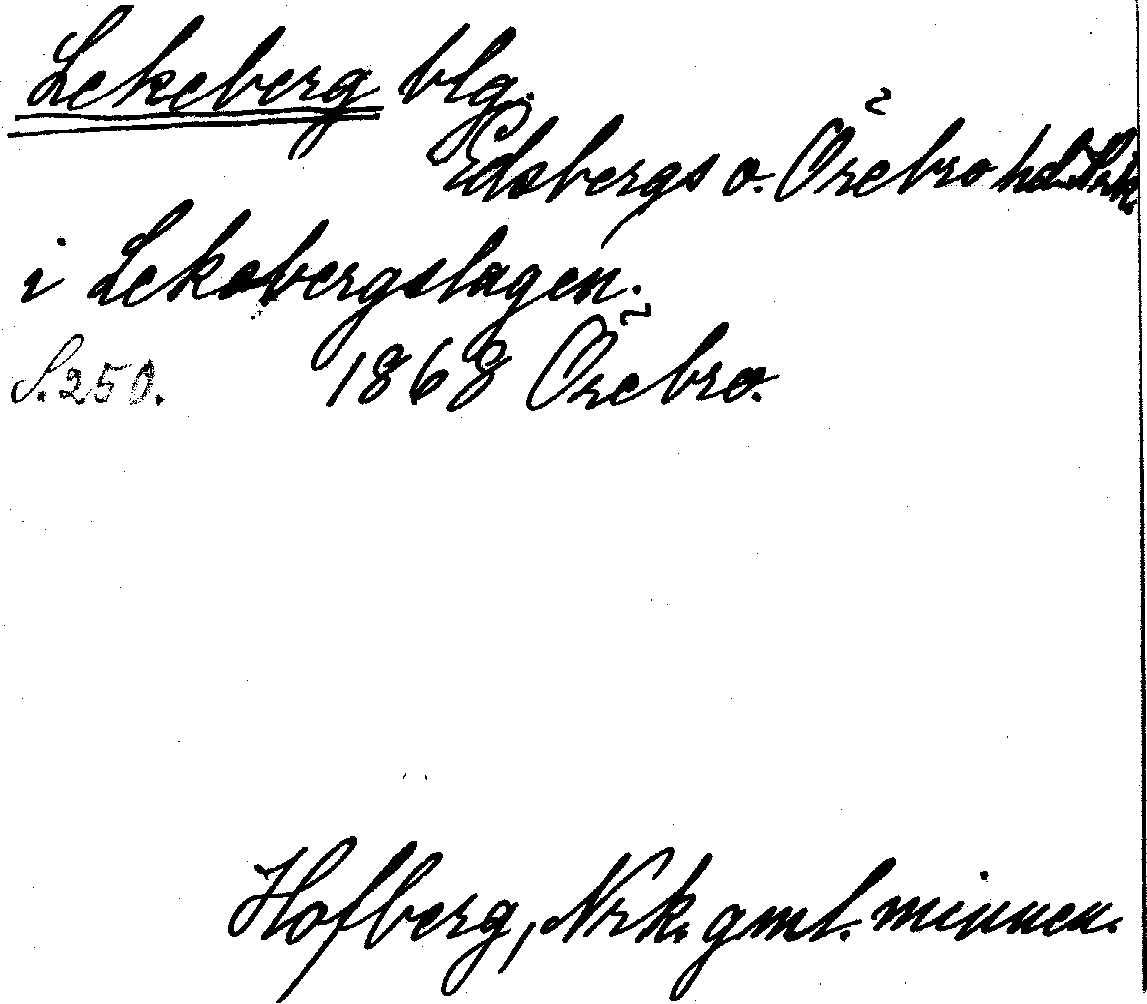 Lekeberg blg.
Edsbergs o. Örebro hd. Nrk.
i Lekebergslagen.
S. 250. 1868 Örebro.
Hofberg, Nrk. gml. minnen.